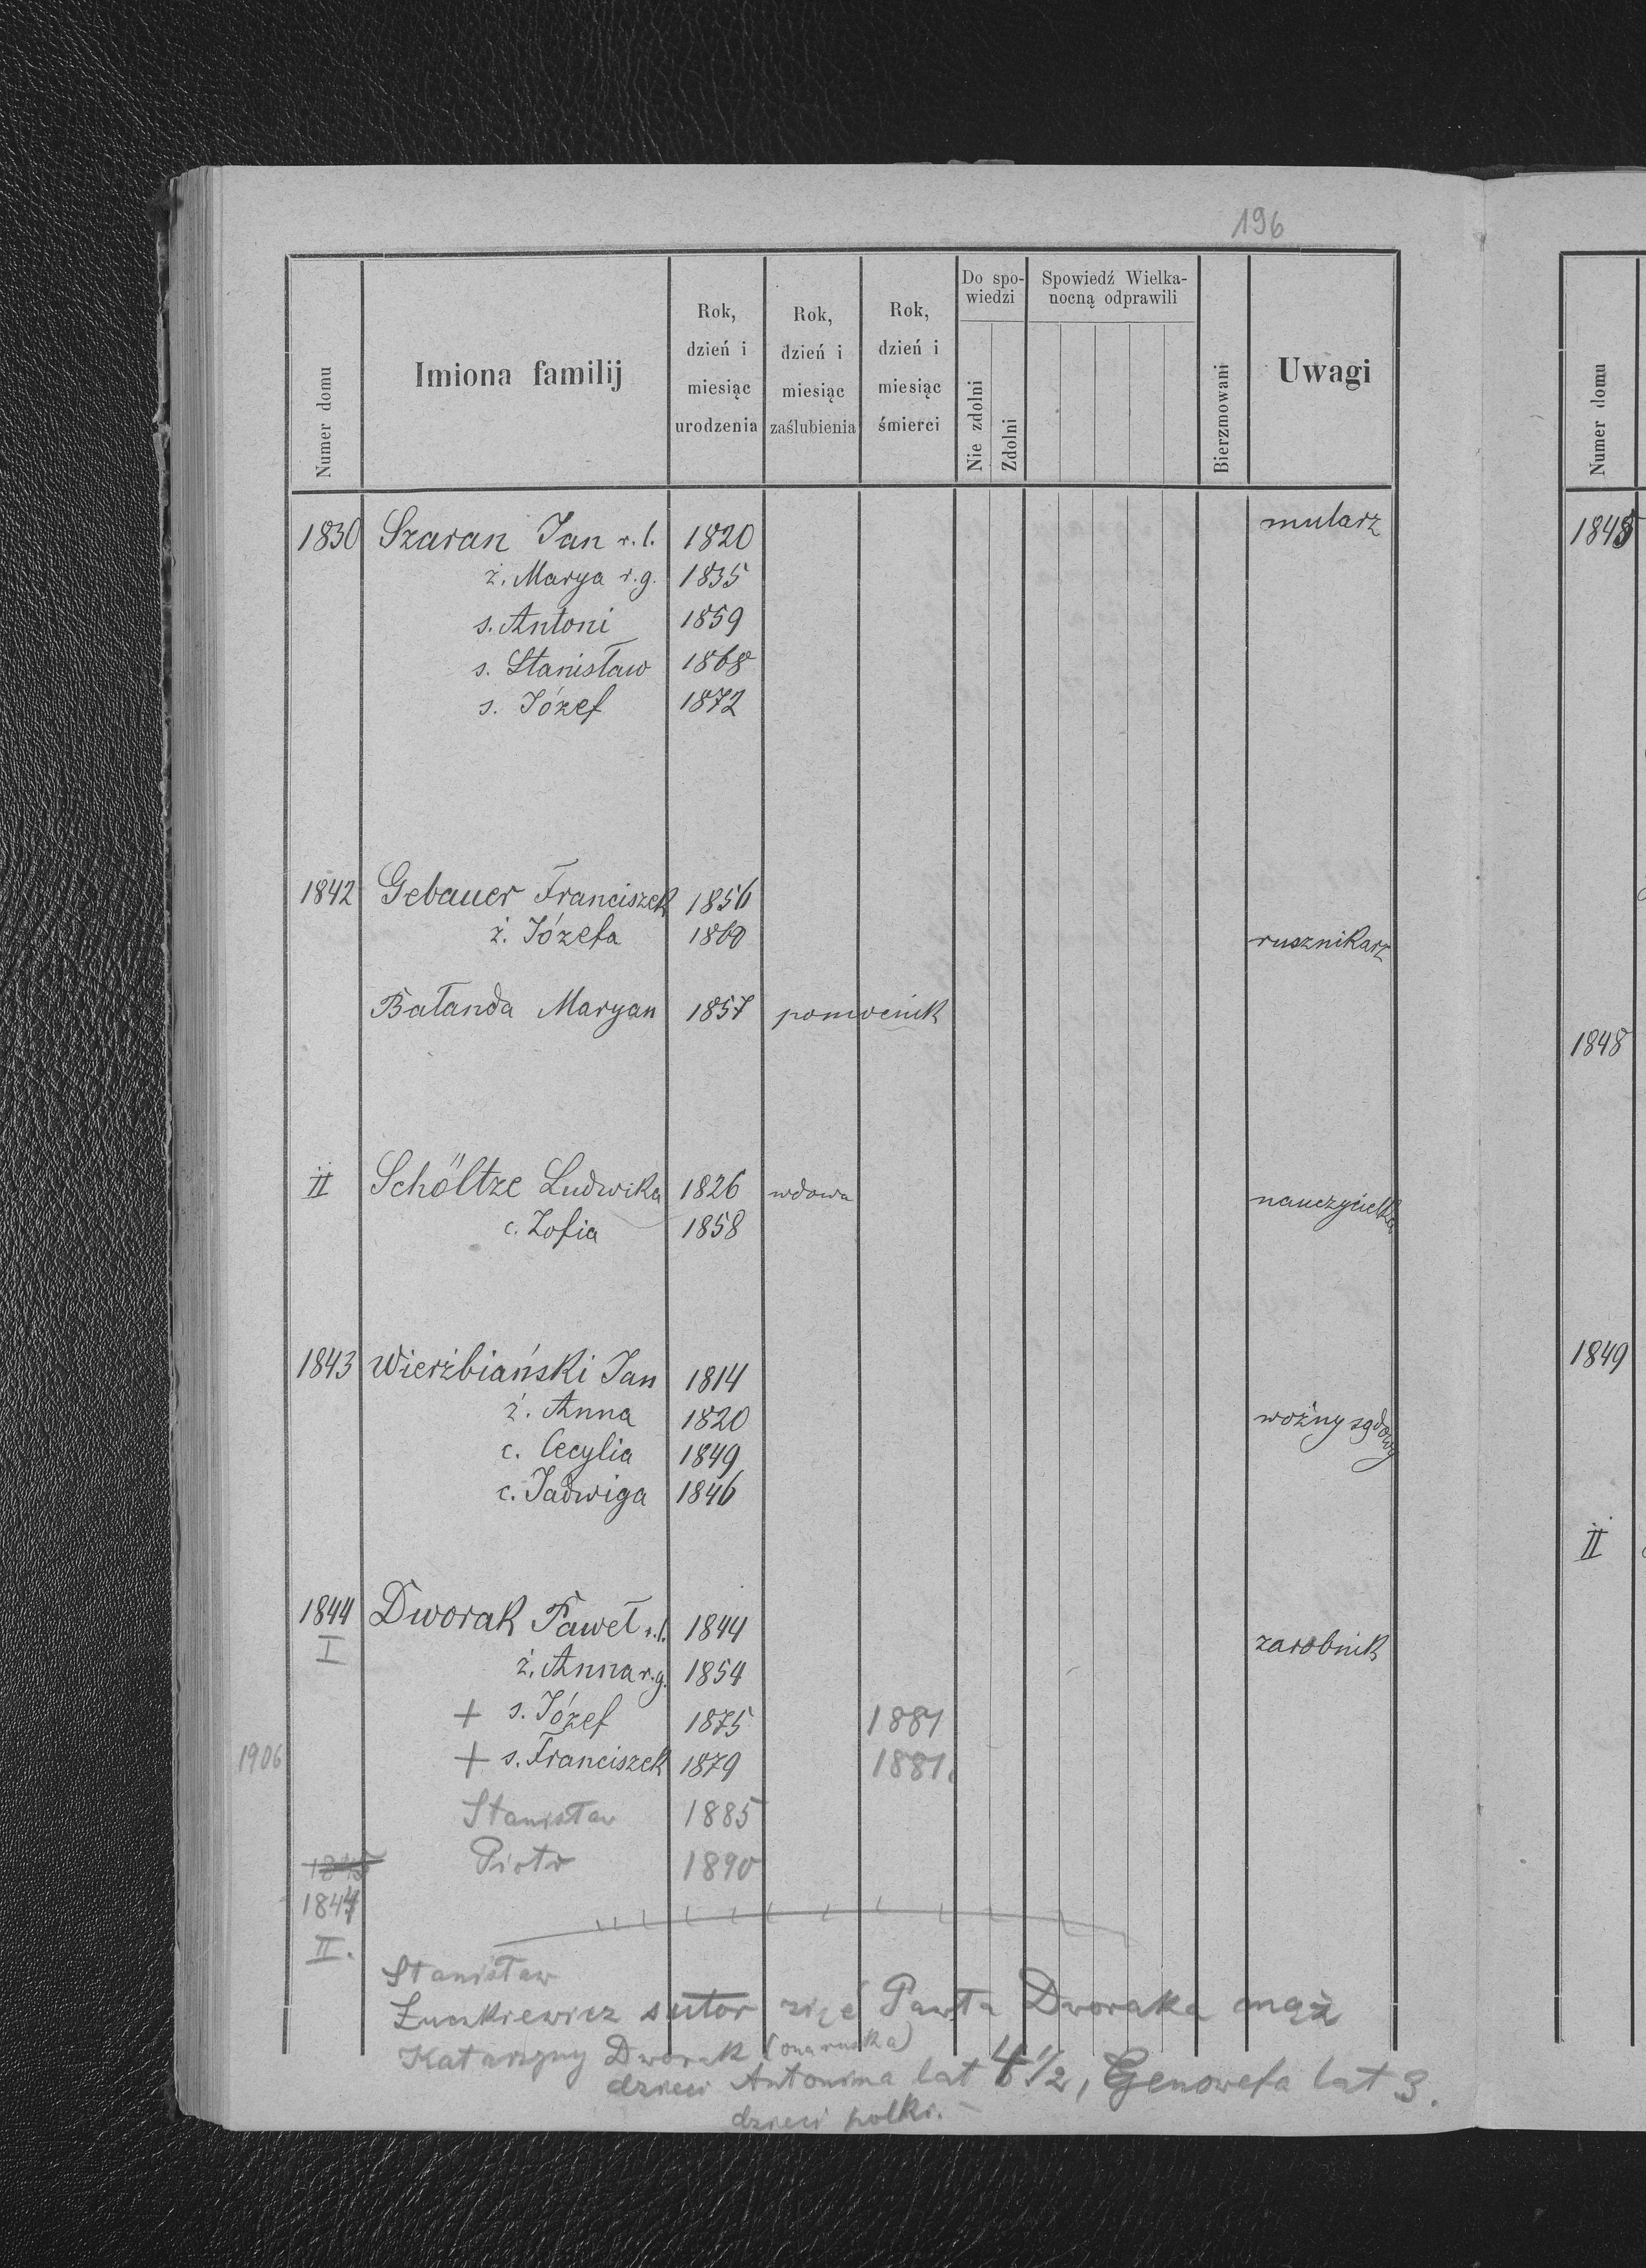 196
Numer domu Imiona familij Rok, dzień i miesiąc urodzenia Rok, dzień i miesiąc zaślubienia Rok, dzień i miesiąc śmierci Do spo-wiedzi Nie zdolni Zdolni Spowiedź Wielka-nocną odprawili Bierzmowani Uwagi
1830 Szaran Jan r. l. 1820 mularz
ż. Marya r. g. 1835
s. Antoni 1859
s. Stanisław 1868
s. Józef 1872
1842 Gebauer Franciszek 1856
ż. Józefa 1860 rusznikarz
Bałanda Maryan 1857 pomocnik
II Schöltze Ludwika 1826 wdowa nauczycielka
c. Zofia 1858
1843 Wierżbiański Jan 1814
ż. Anna 1820 woźny sądowy
c. Cecylia 1849
c. Jadwiga 1846
1844 Dworak Paweł r. l. 1844
I zarobnik
ż. Anna r. g. 1854
+ s. Józef 1875 1881
1906 + s. Franciszek 1879 1881.
Stanisław 1885
1845 Piotr 1890
1844
II.
Stanisław
Łuczkiewicz sutor zięć Pawła Dworaka mąż
Katarzyny Dworak (ona ruska)
dzieci Antonina lat 4 1/2, Genowefa lat 3.
dzieci polki.
Numer domu
1845
1848
1849
II